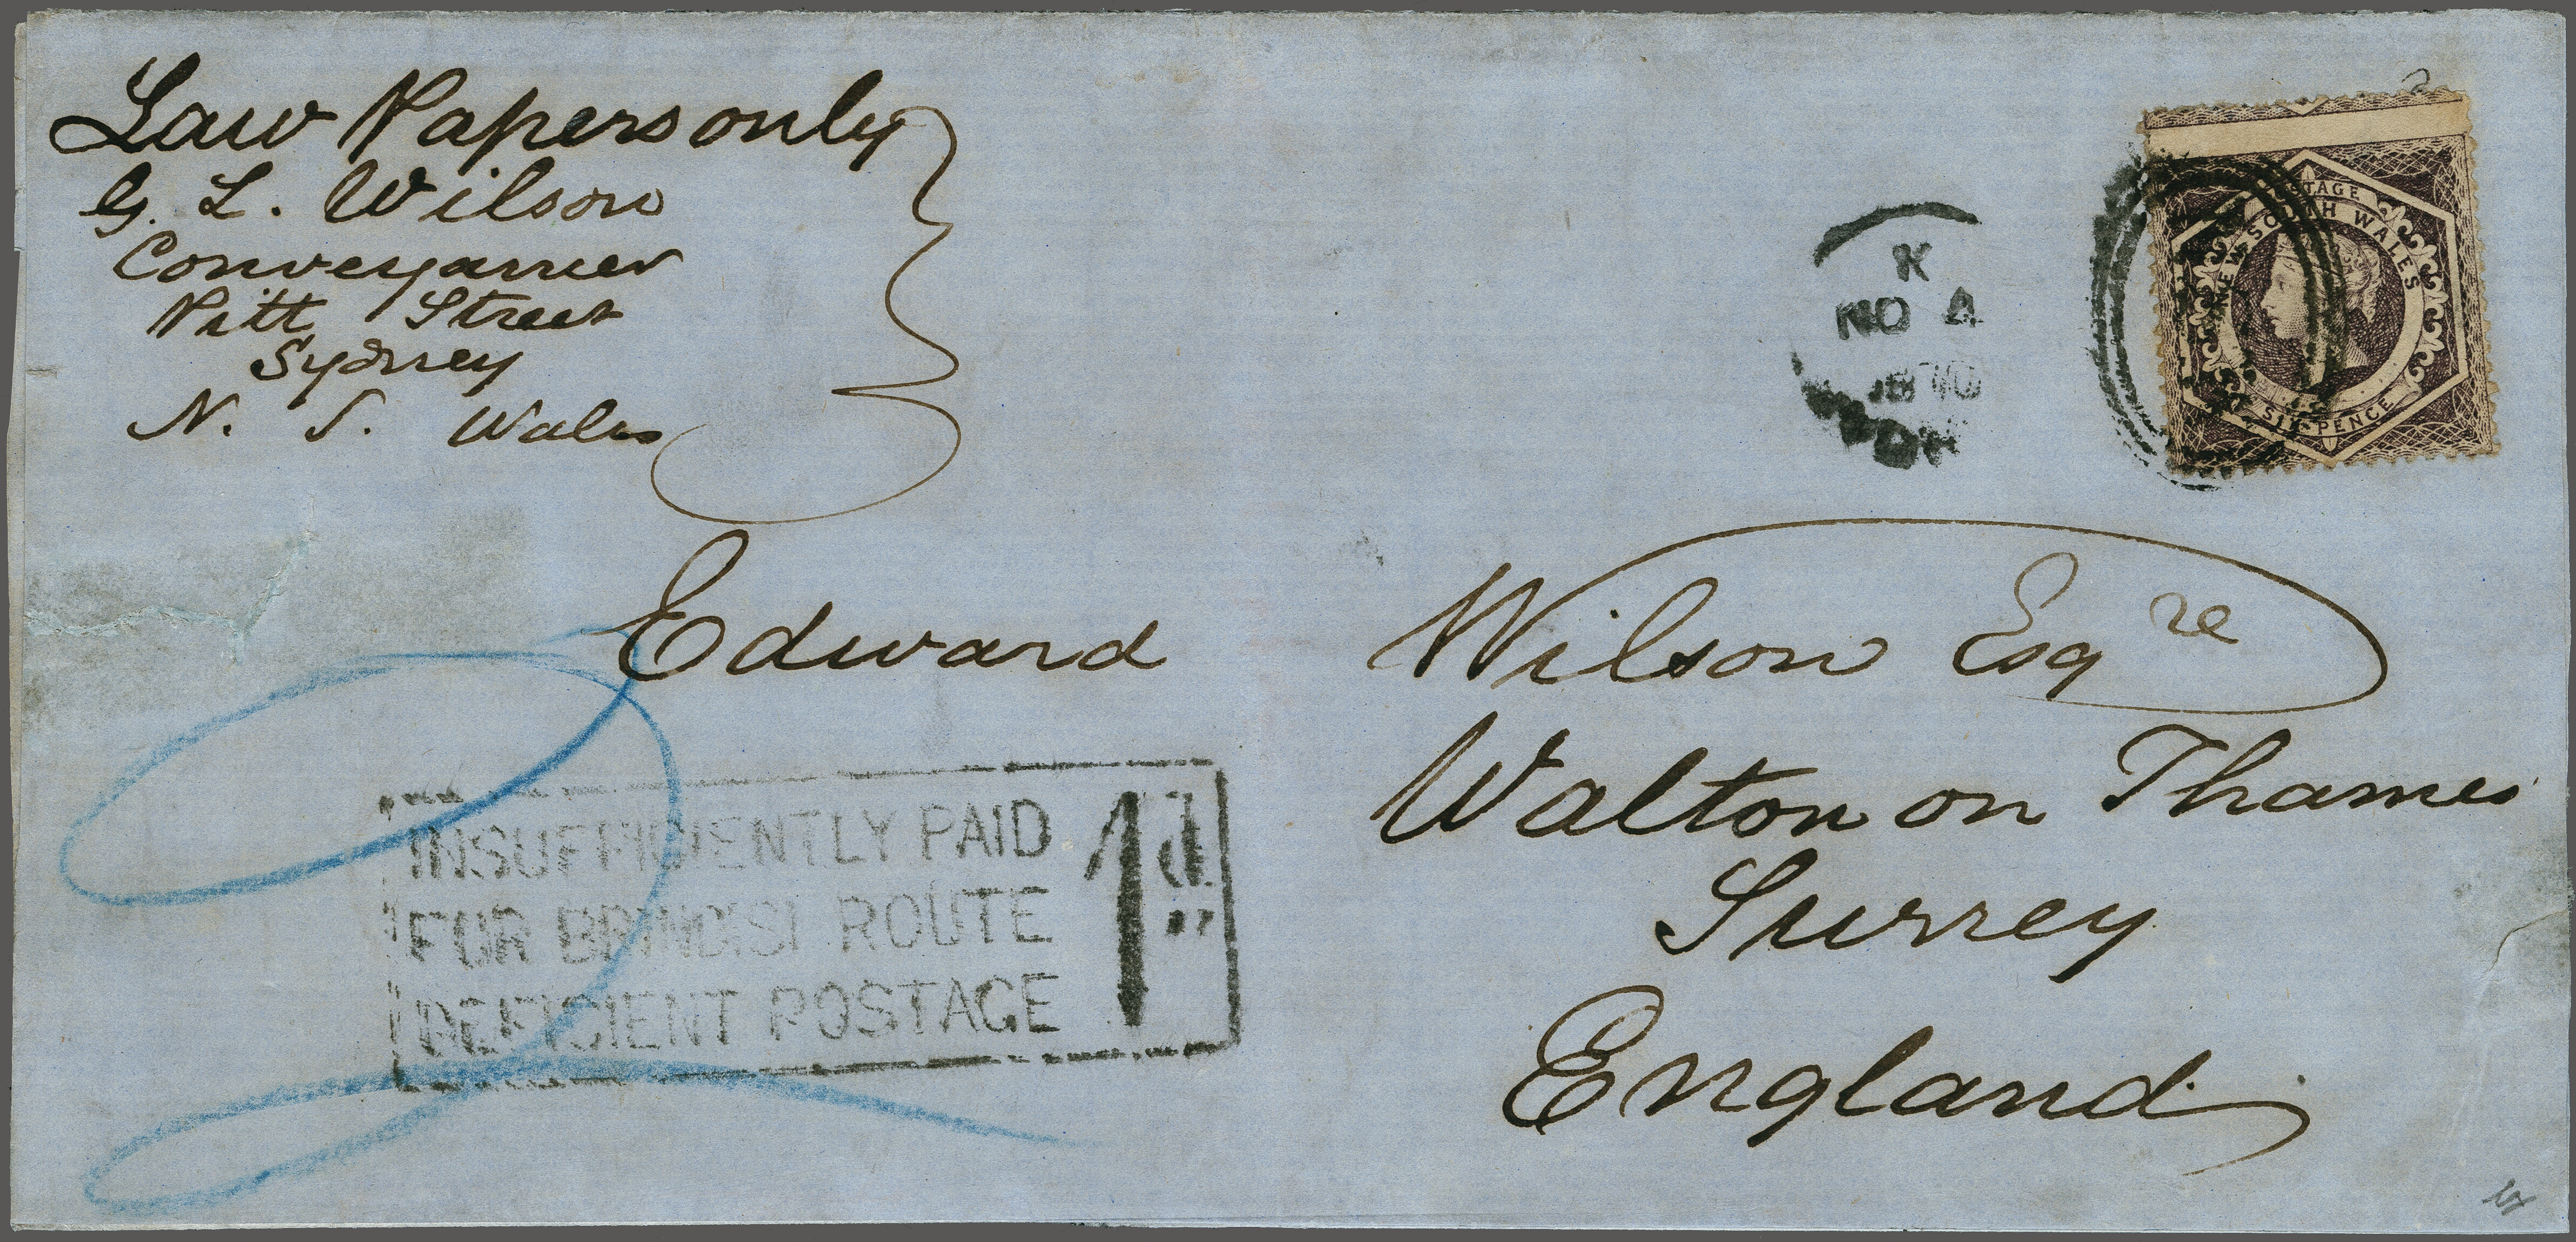 Law Papers only
G. L. Wilson
Conveyancer
Pitt Street
Sydney
N. S. Wales
K
NO 4
1870
POSTAGE
NEW SOUTH WALES
SIX PENCE
Edward Wilson Esqre
Walton on Thames
Surrey
England
INSUFFICIENTLY PAID
FOR BRINDISI ROUTE
DEFICIENT POSTAGE
1d